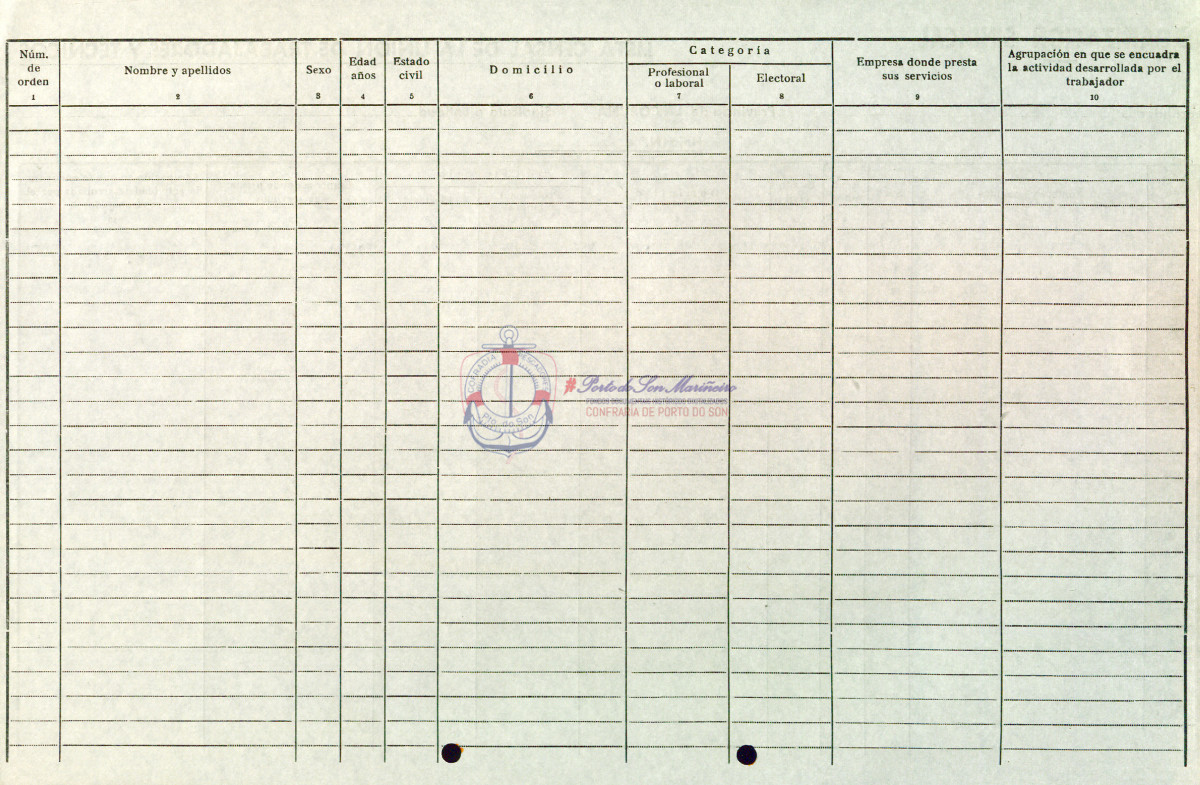 Núm.
de
orden
1
Nombre y apellidos
2
Sexo
3
Edad
años
4
Estado
civil
5
Domicilio
6
Categoría
Profesional
o laboral
7
Electoral
8
Empresa donde presta
sus servicios
9
Agrupación en que se encuadra
la actividad desarrollada por el
trabajador
10
COFRADÍA PESCADORES
Pto. do Son
# Porto do Son Mariñeiro
CONFRARÍA DE PORTO DO SON